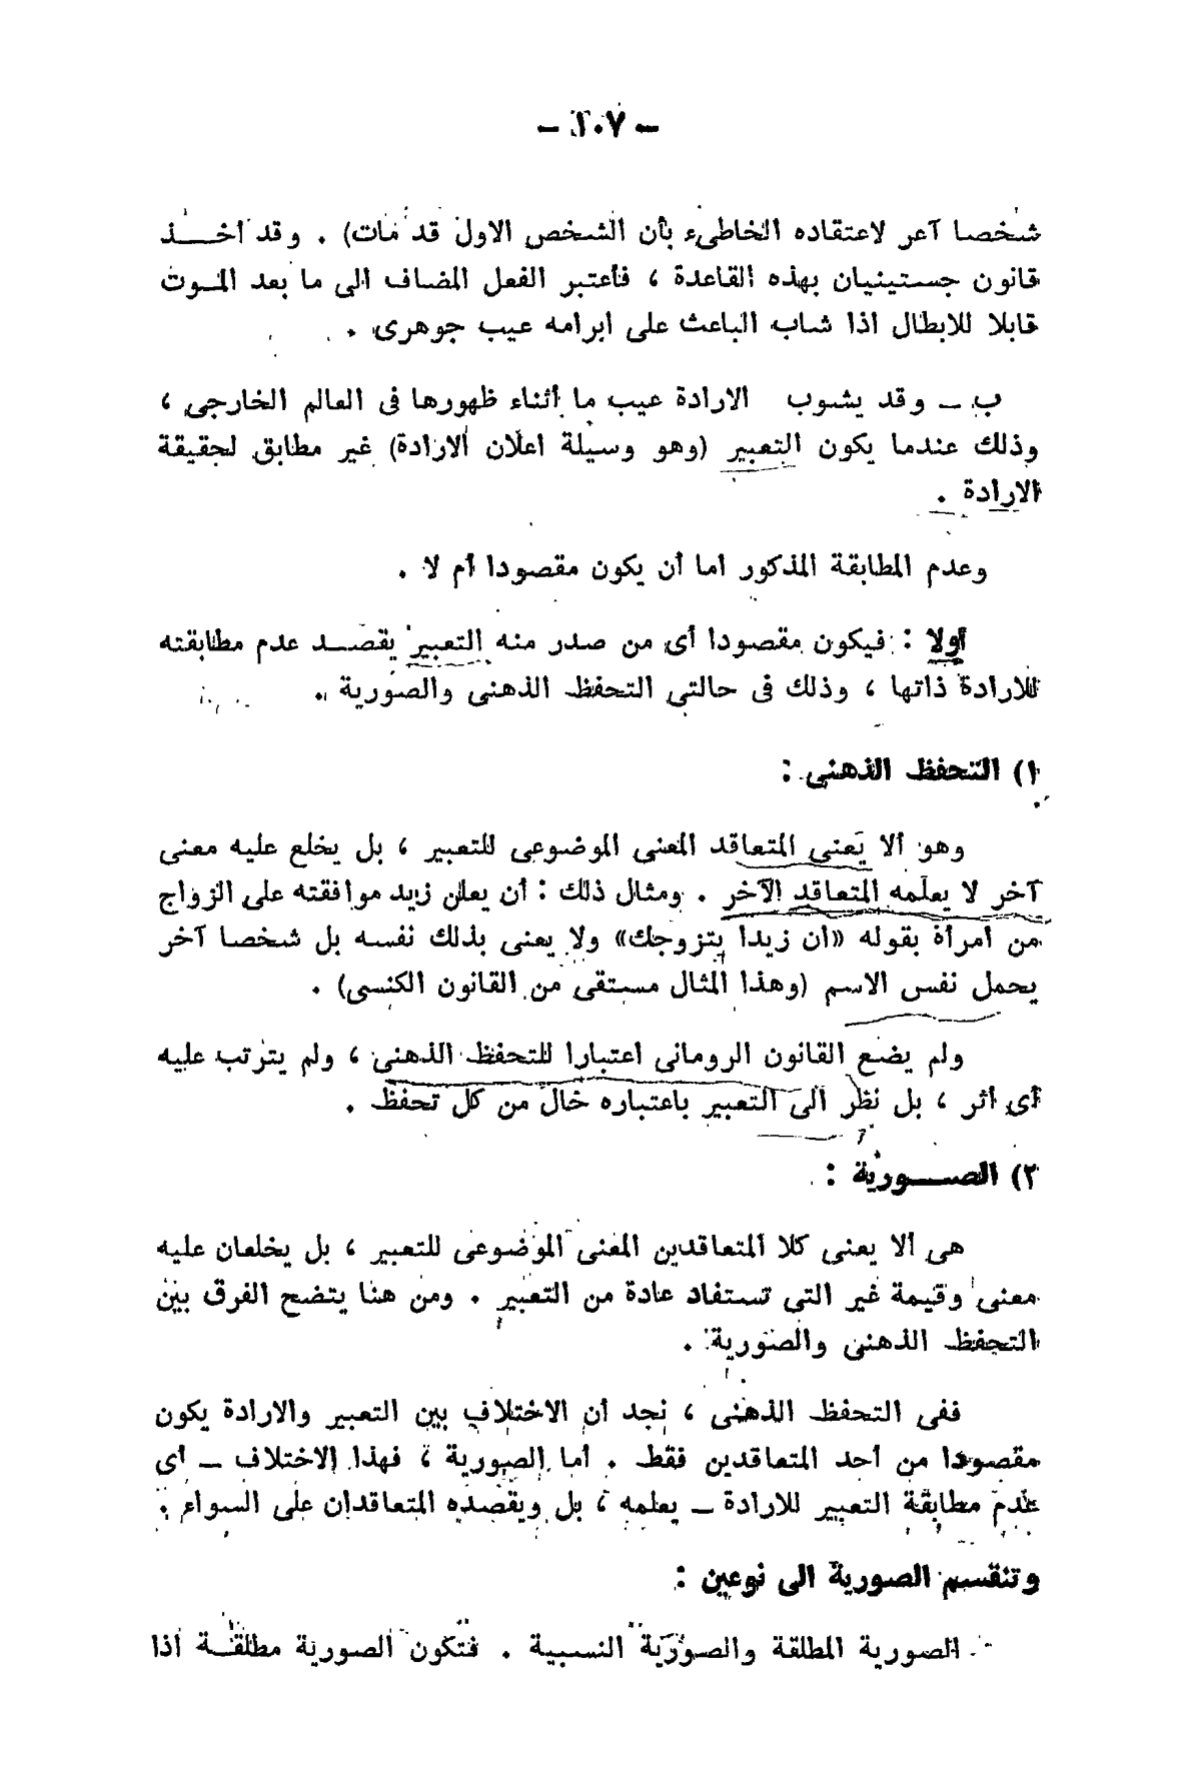 – ٢٠٧ –
شخصا آخر لاعتقاده الخاطىء بأن الشخص الاول قد مات) . وقد أخـــذ
قانون جستينيان بهذه القاعدة ، فأعتبر الفعل المضاف الى ما بعد الموت
قابلا للابطال اذا شاب الباعث على ابرامه عيب جوهرى .
ب – وقد يشوب الارادة عيب ما أثناء ظهورها فى العالم الخارجى ،
وذلك عندما يكون التعبير (وهو وسيلة اعلان الارادة) غير مطابق لحقيقة
الارادة .
وعدم المطابقة المذكور اما أن يكون مقصودا أم لا .
أولا : فيكون مقصودا أى من صدر منه التعبير يقصــد عدم مطابقته
للارادة ذاتها ، وذلك فى حالتى التحفظ الذهنى والصورية .
١) التحفظ الذهنى :
وهو ألا يعنى المتعاقد المعنى الموضوعى للتعبير ، بل يخلع عليه معنى
آخر لا يعلمه المتعاقد الآخر . ومثال ذلك : أن يعلن زيد موافقته على الزواج
من امرأة بقوله «ان زيدا يتزوجك» ولا يعنى بذلك نفسه بل شخصا آخر
يحمل نفس الاسم (وهذا المثال مستقى من القانون الكنسى) .
ولم يضع القانون الرومانى اعتبارا للتحفظ الذهنى ، ولم يترتب عليه
أى أثر ، بل نظر الى التعبير باعتباره خال من كل تحفظ .
٢) الصــــورية :
هى ألا يعنى كلا المتعاقدين المعنى الموضوعى للتعبير ، بل يخلعان عليه
معنى وقيمة غير التى تستفاد عادة من التعبير . ومن هنا يتضح الفرق بين
التحفظ الذهنى والصورية .
ففى التحفظ الذهنى ، نجد أن الاختلاف بين التعبير والارادة يكون
مقصودا من أحد المتعاقدين فقط . أما الصورية ، فهذا الاختلاف – أى
عدم مطابقة التعبير للارادة – يعلمه ، بل ويقصده المتعاقدان على السواء .
وتنقسم الصورية الى نوعين :
الصورية المطلقة والصورية النسبية . فتكون الصورية مطلقــة اذا